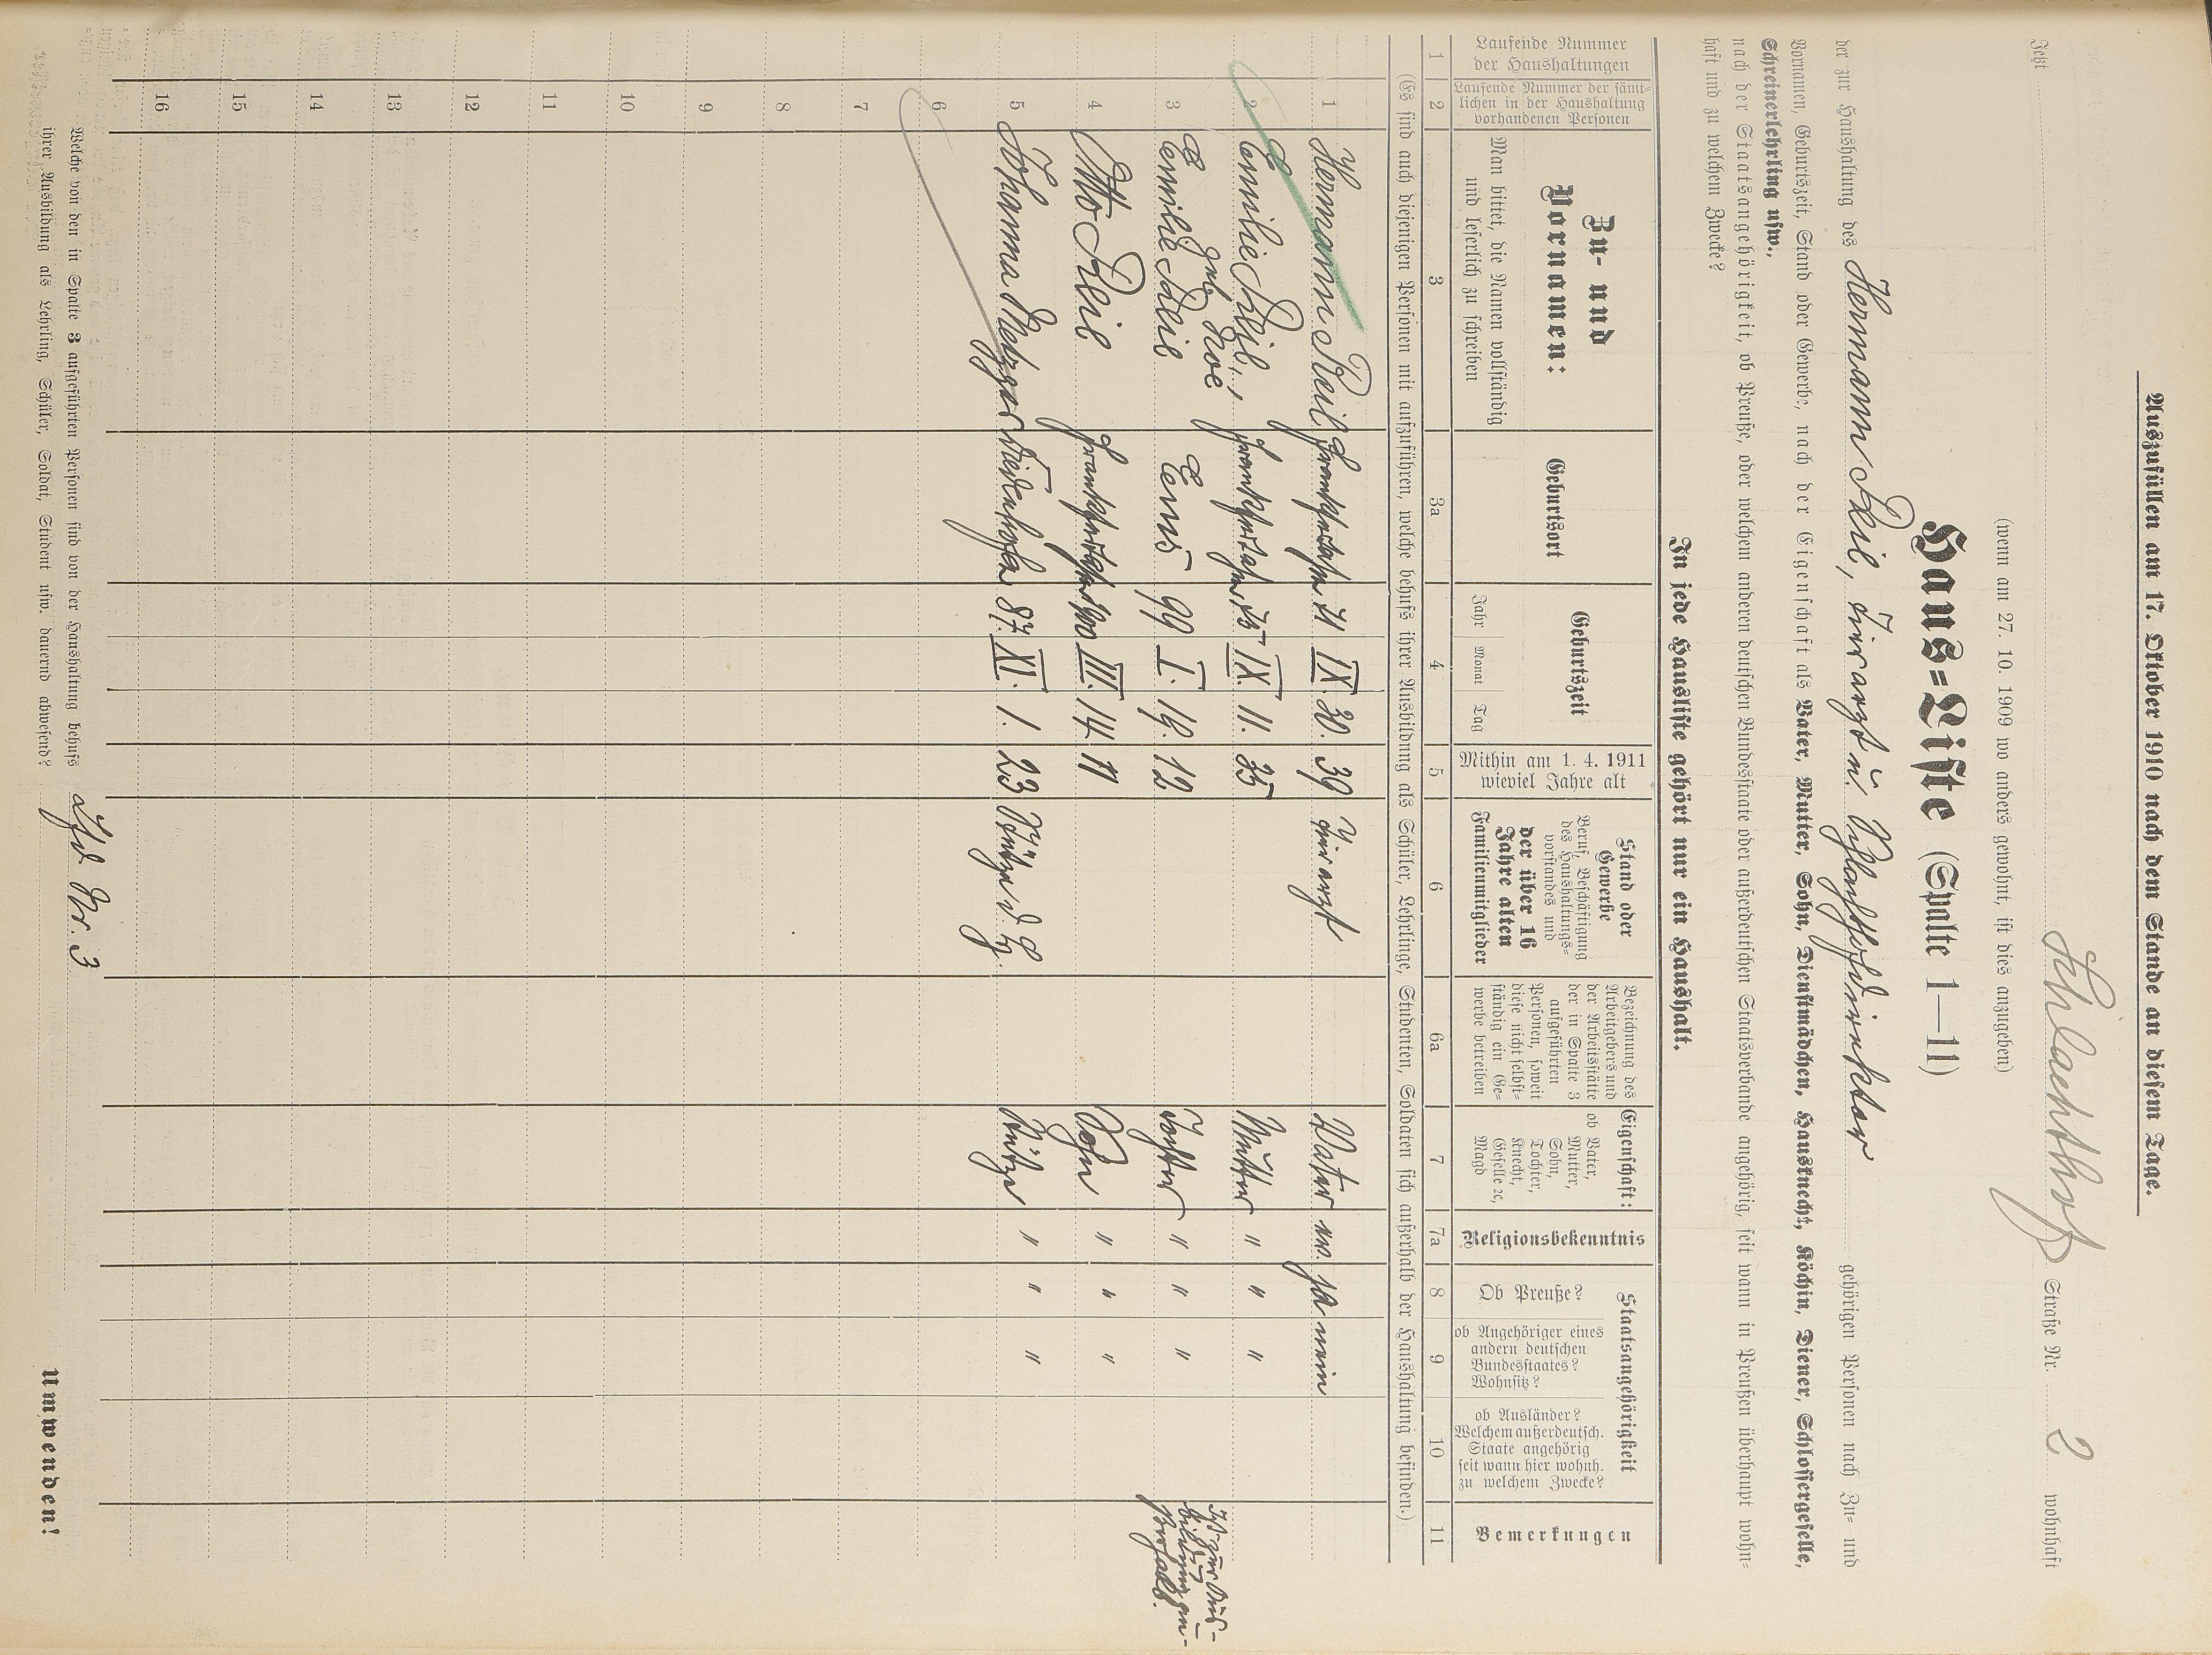 Auszufüllen am 17. Oktober 1910 nach dem Stande an diesem Tage.
Jetzt Schlachthof Straße Nr. 2 wohnhaft
(wenn am 27. 10. 1909 wo anders gewohnt, ist dies anzugeben)
Haus=Liste (Spalte 1—11)
der zur Haushaltung des Hermann Keil, Tierarzt u. Schlachthofdirektor gehörigen Personen nach Zu= und
Vornamen, Geburtszeit, Stand oder Gewerbe, nach der Eigenschaft als Vater, Mutter, Sohn, Dienstmädchen, Hausknecht, Köchin, Diener, Schlossergeselle,
Schreinerlehrling usw.,
nach der Staatsangehörigkeit, ob Preuße, oder welchem anderen deutschen Bundesstaate oder außerdeutschen Staatsverbande angehörig, seit wann in Preußen überhaupt wohn=
haft und zu welchem Zwecke?
In jede Hausliste gehört nur ein Haushalt.
Laufende Nummer der Haushaltungen
Laufende Nummer der sämt=lichen in der Haushaltung vorhandenen Personen
Zu- und Vornamen:
Man bittet, die Namen vollständig und leserlich zu schreiben
Geburtsort
Geburtszeit
Jahr Monat Tag
Mithin am 1. 4. 1911 wieviel Jahre alt
Stand oder Gewerbe
Beruf, Beschäftigung des Haushaltungs=vorstandes und
der über 16 Jahre alten Familienmitglieder
Bezeichnung des Arbeitgebers und der Arbeitsstätte der in Spalte 3 aufgeführten Personen, soweit diese nicht selbst=ständig ein Ge=werbe betreiben
Eigenschaft:
ob Vater, Mutter, Sohn, Tochter, Knecht, Geselle ec, Magd
Religionsbekenntnis
Staatsangehörigkeit
Ob Preuße?
ob Angehöriger eines andern deutschen Bundesstaates? Wohnsitz?
ob Ausländer? Welchem außerdeutsch. Staate angehörig seit wann hier wohnh. zu welchem Zwecke?
Bemerkungen
1 2 3 3a 4 5 6 6a 7 7a 8 9 10 11
(Es sind auch diejenigen Personen mit aufzuführen, welche behufs ihrer Ausbildung als Schüler, Lehrlinge, Studenten, Soldaten sich außerhalb der Haushaltung befinden.)
1 Hermann Keil 71 IX. 30. 39 Tierarzt Vater ev. ja nein
2 Emilie Keil, 75 IX. 11. 35 Mutter " " "
geb. Noe
3 Emilie Keil Ems 99 I. 19. 12 Tochter " " "
4 Otto Keil 1900 III. 14 11 Sohn " " "
5 Johanna Metzger 87. XI. 1. 23 Stütze d. Stütze " " "
6
7
8
9
10
11
12
13
14
15
16
Ist zur Aus-
bildung in
Welche von den in Spalte 3 aufgeführten Personen sind von der Haushaltung behufs
ihrer Ausbildung als Lehrling, Schüler, Soldat, Student usw. dauernd abwesend? lfd Nr. 3
Umwenden!